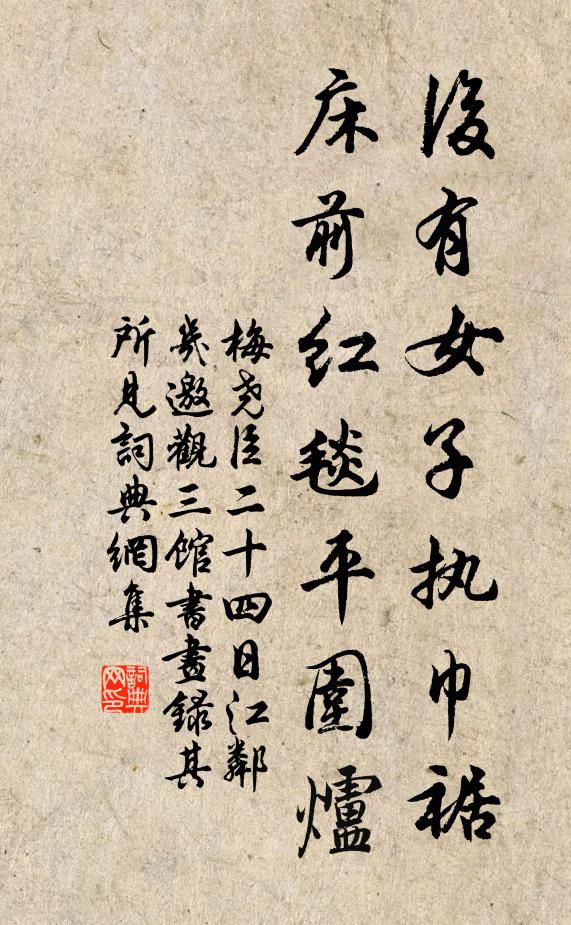 後有女子执巾裾
床前红毯平圍爐
梅尧臣二十四日江鄰
幾邀觀三館書畫錄其
所見詞典網集
詞典网印